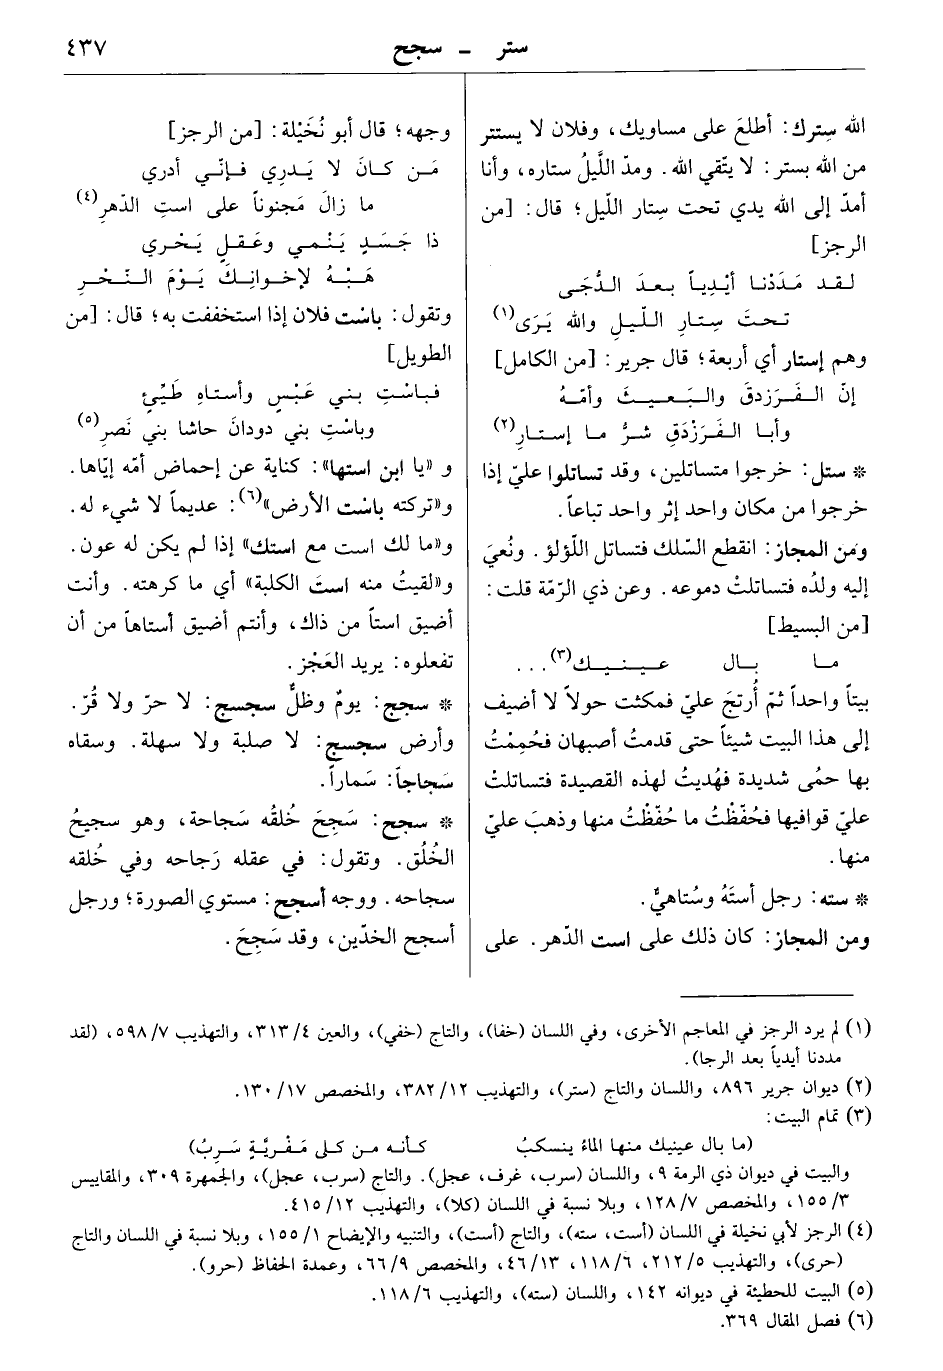 ستر ـ سجح
٤٣٧
الله سِترك: أطلعَ على مساويك، وفلان لا يستتر
من الله بستر: لا يتّقي الله. ومدّ اللَّيلُ ستاره، وأنا
أمدّ إلى الله يدي تحت سِتار اللّيل؛ قال: [من
الرجز]
لقد مَدَدْنا أيْدِياً بعدَ الدُّجَى
تحتَ سِتارِ اللّيلِ والله يَرَى(١)
وهم إستار أي أربعة؛ قال جرير: [من الكامل]
إنّ الفَرَزدقَ والبَعيثَ وأمّهُ
وأبا الفَرَزْدَقِ شرُّ ما إستارِ(٢)
* ستل: خرجوا متساتلين، وقد تساتلوا عليّ إذا
خرجوا من مكان واحد إثر واحد تباعاً.
ومَن المجاز: انقطع السّلك فتساتل اللّؤلؤ. ونُعيَ
إليه ولدُه فتساتلتْ دموعه. وعن ذي الرّمّة قلت:
[من البسيط]
ما بال عينيك(٣)...
بيتاً واحداً ثمّ أُرتجَ عليّ فمكثت حولاً لا أضيف
إلى هذا البيت شيئاً حتى قدمتُ أصبهان فحُمِمْتُ
بها حمُى شديدة فهُديتُ لهذه القصيدة فتساتلتْ
عليّ قوافيها فحُفّظْتُ ما حُفّظْتُ منها وذهبَ عليّ
منها.
* سته: رجل أستَهُ وسُتاهيٌّ.
ومن المجاز: كان ذلك على است الدّهر. على
وجهه؛ قال أبو نُخَيْلة: [من الرجز]
مَن كانَ لا يَدرِي فإنّي أدري
ما زالَ مَجنوناً على استِ الدّهرِ(٤)
ذا جَسَدٍ يَنْمي وعَقلٍ يَحْري
هَبْهُ لإخوانِكَ يَوْمَ النّحْرِ
وتقول: باسْت فلان إذا استخففت به؛ قال: [من
الطويل]
فباسْتِ بني عَبْسٍ وأستاهِ طَيّئٍ
وباسْتِ بني دودانَ حاشا بني نَصرِ(٥)
و «يا ابن استها»: كناية عن إحماض أمّه إيّاها.
و«تركته باسْت الأرض»(٦): عديماً لا شيء له.
و«ما لك است مع استك» إذا لم يكن له عون.
و«لقيتُ منه استَ الكلبة» أي ما كرهته. وأنت
أضيق استاً من ذاك، وأنتم أضيق أستاهاً من أن
تفعلوه: يريد العَجْز.
* سجج: يومٌ وظلٌّ سجسج: لا حرّ ولا قُرّ.
وأرض سجسج: لا صلبة ولا سهلة. وسقاه
سَجاجاً: سَماراً.
* سجح: سَجِحَ خُلقُه سَجاحة، وهو سجيحُ
الخُلُق. وتقول: في عقله رَجاحه وفي خُلقه
سجاحه. ووجه أسجح: مستوي الصورة؛ ورجل
أسجح الخدّين، وقد سَجِحَ.
(١) لم يرد الرجز في المعاجم الأخرى، وفي اللسان (خفا)، والتاج (خفي)، والعين ٣١٣/٤، والتهذيب ٥٩٨/٧، (لقد
مددنا أيدياً بعد الرجا).
(٢) ديوان جرير ٨٩٦، واللسان والتاج (ستر)، والتهذيب ٣٨٢/١٢، والمخصص ١٣٠/١٧.
(٣) تمام البيت:
(ما بال عينيك منها الماءُ ينسكبُ كأنه من كلى مَفْريَّةٍ سَرِبُ)
والبيت في ديوان ذي الرمة ٩، واللسان (سرب، غرف، عجل). والتاج (سرب، عجل)، والجمهرة ٣٠٩، والمقاييس
١٥٥/٣، والمخصص ١٢٨/٧، وبلا نسبة في اللسان (كلا)، والتهذيب ٤١٥/١٢.
(٤) الرجز لأبي نخيلة في اللسان (أست، سته)، والتاج (أست)، والتنبيه والإيضاح ١٥٥/١، وبلا نسبة في اللسان والتاج
(حرى)، والتهذيب ٢١٢/٥، ١١٨/٦، ٤٦/١٣، والمخصص ٦٦/٩، وعمدة الحفاظ (حرو).
(٥) البيت للحطيئة في ديوانه ١٤٢، واللسان (سته)، والتهذيب ١١٨/٦.
(٦) فصل المقال ٣٦٩.